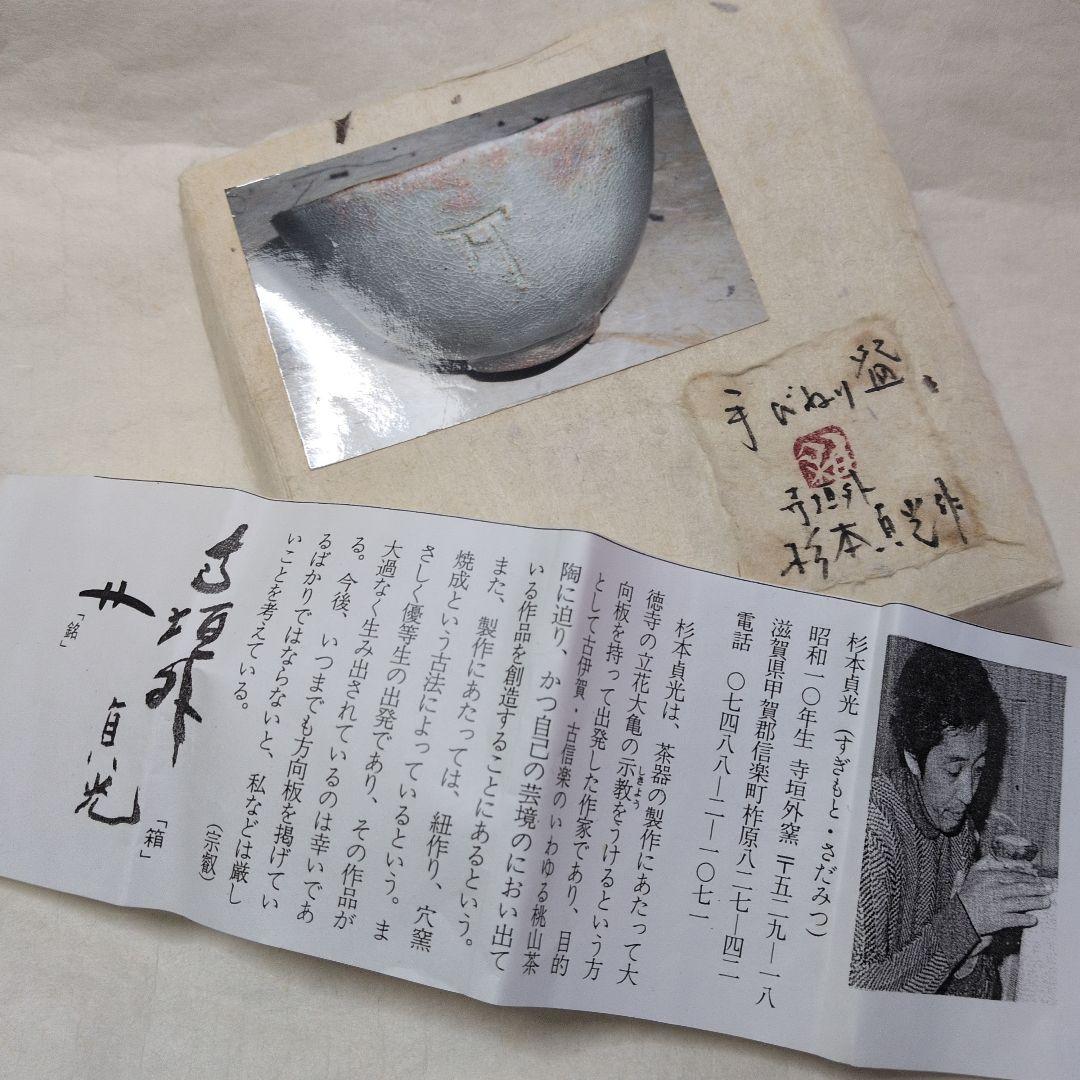 手びねり盌
寺垣外
杉本貞光作
杉本貞光(すぎもと・さだみつ)
昭和一〇年生 寺垣外窯 〒五二九―一八
滋賀県甲賀郡信楽町柞原八二七―四二
電話 〇七四八八―二―一〇七一
杉本貞光は、茶器の製作にあたって大
徳寺の立花大亀の示教をうけるという方
しきよう
向板を持って出発した作家であり、目的
として古伊賀・古信楽のいわゆる桃山茶
陶に迫り、かつ自己の芸境のにおい出て
いる作品を創造することにあるという。
また、製作にあたっては、紐作り、穴窯
焼成という古法によっているという。ま
さしく優等生の出発であり、その作品が
大過なく生み出されているのは幸いであ
る。今後、いつまでも方向板を掲げてい
るばかりではならないと、私などは厳し
いことを考えている。
(宗叡)
寺垣外
貞光
「箱」
「銘」